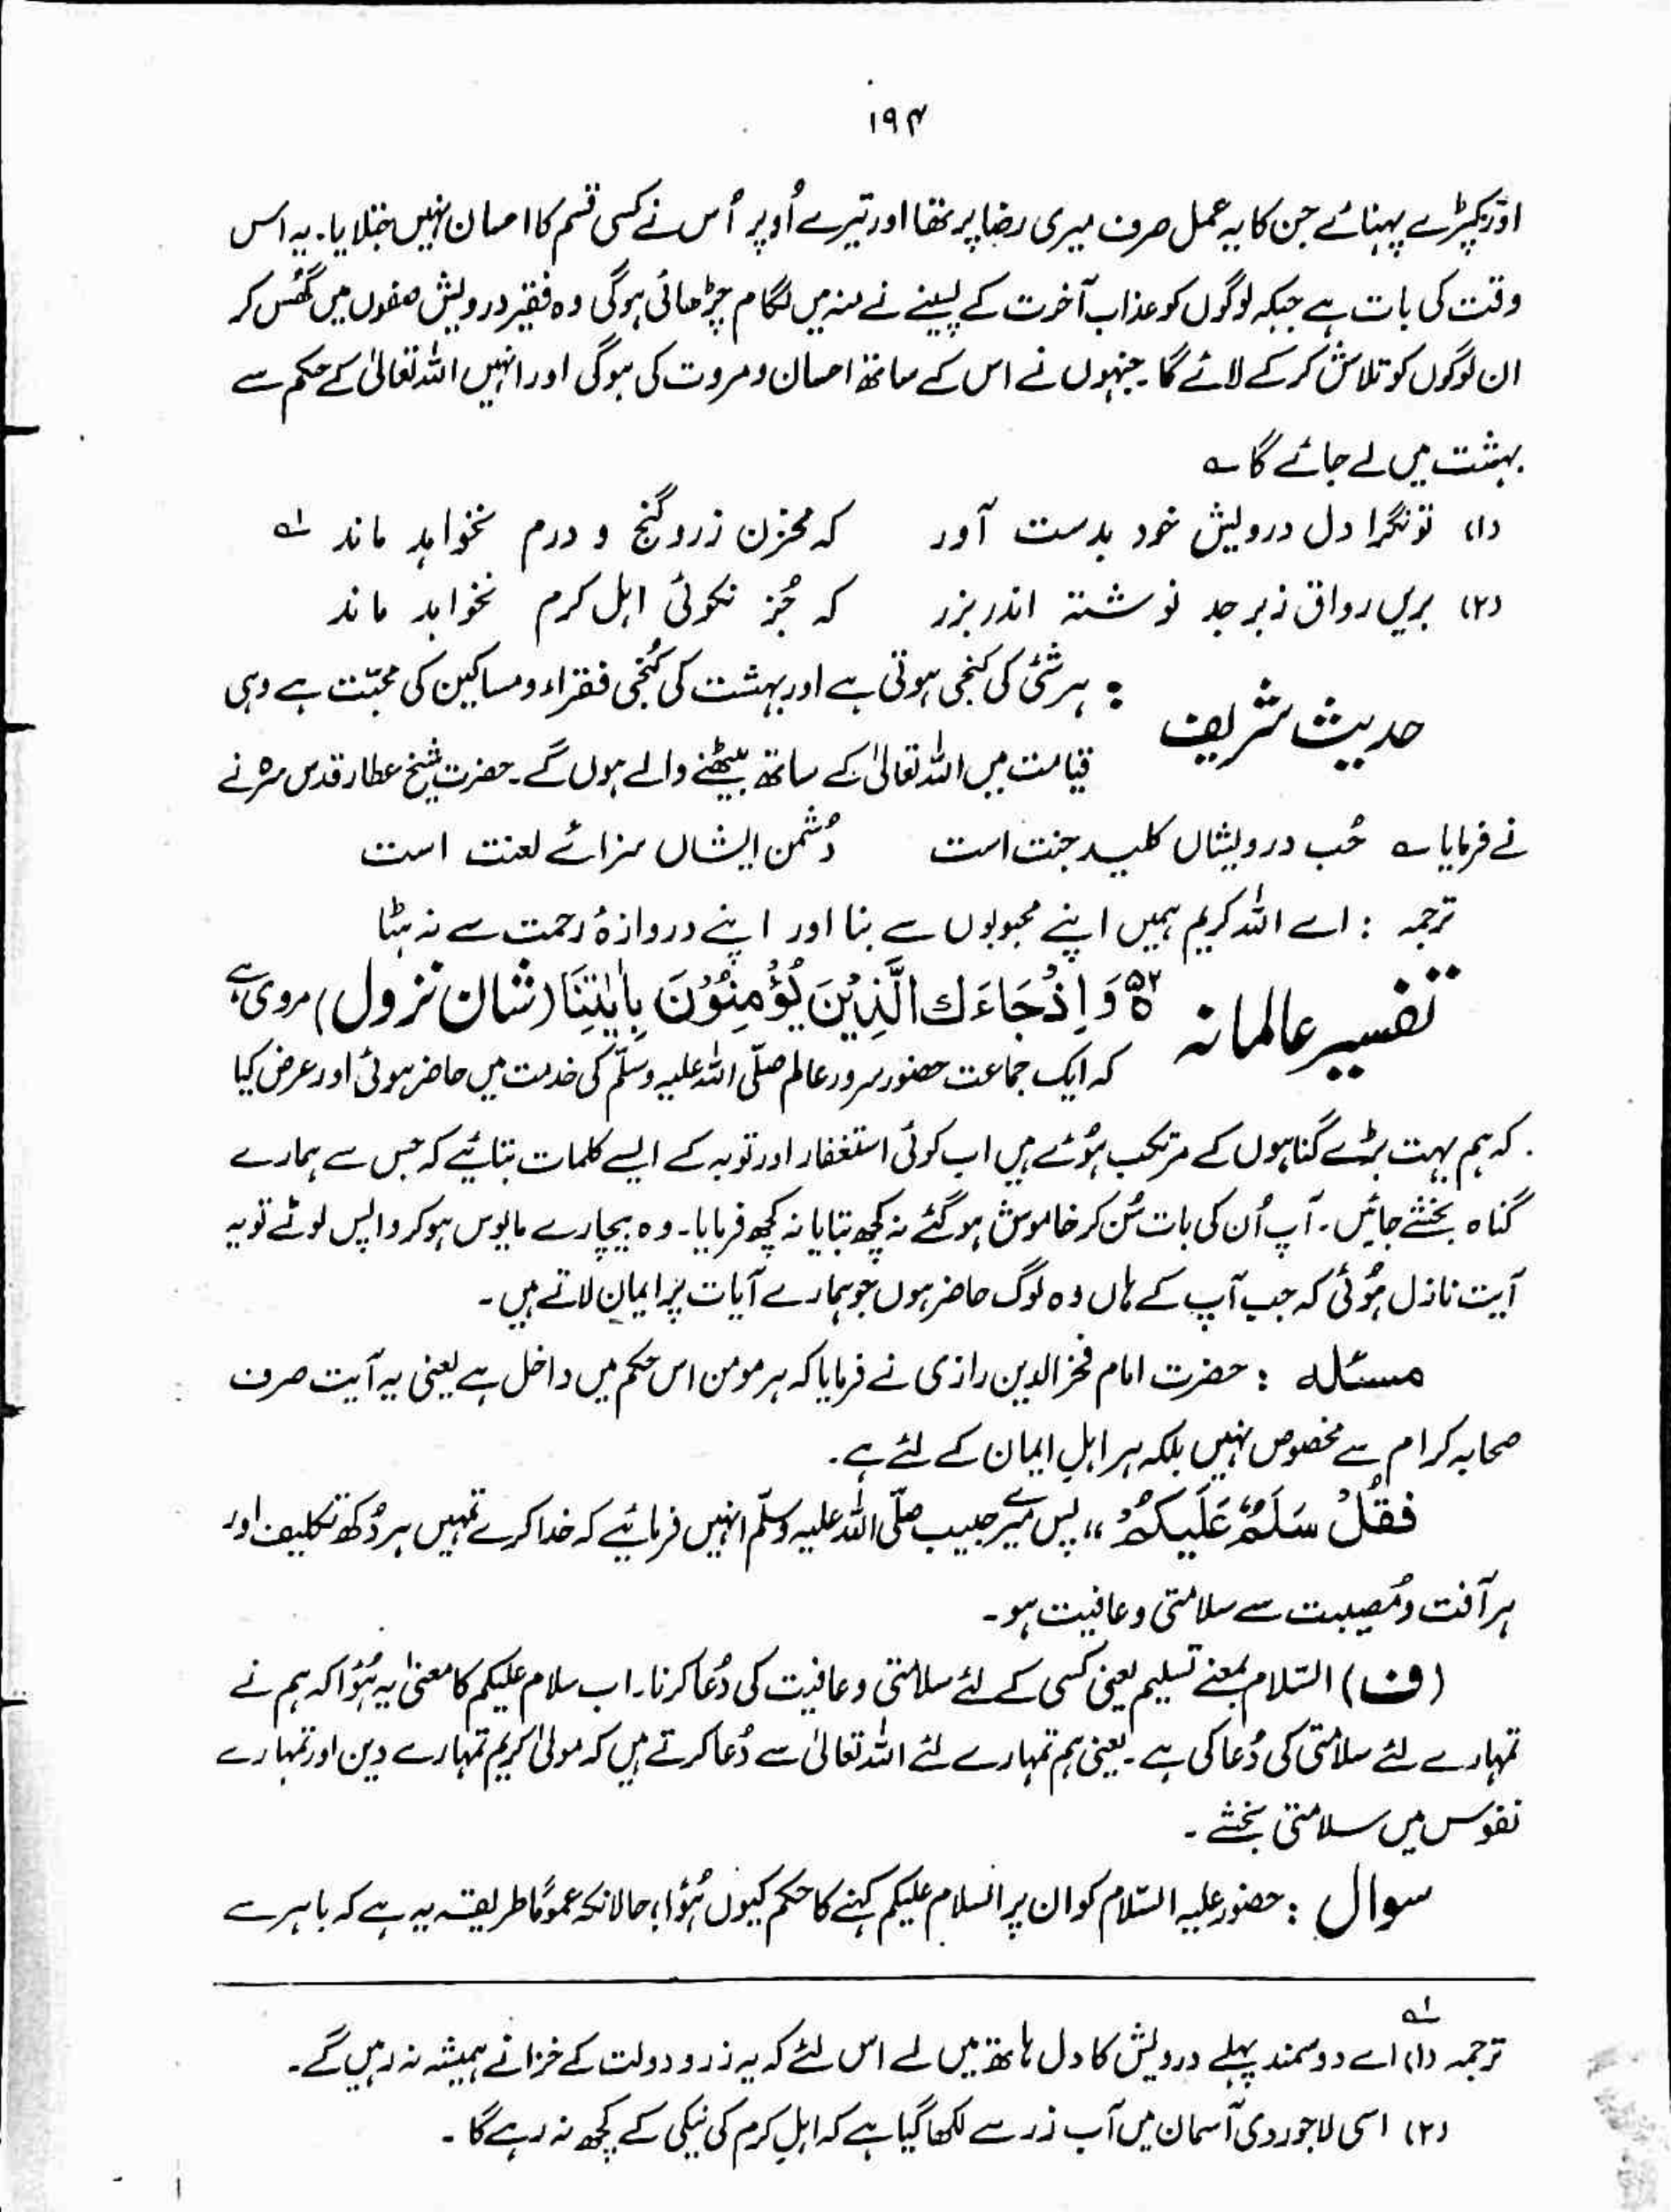 ۱۹۴
اور کپڑے پہنائے جن کا یہ عمل صرف میری رضا پر تھا اور تیرے اُوپر اُس نے کسی قسم کا احسان نہیں جتلایا۔ یہ اس
وقت کی بات ہے جبکہ لوگوں کو عذاب آخرت کے پسینے نے منہ میں لگام چڑھائی ہوگی وہ فقیر درویش صفوں میں گھُس کر
ان لوگوں کو تلاش کر کے لائے گا۔ جنہوں نے اس کے ساتھ احسان و مروت کی ہوگی اور انہیں اللہ تعالیٰ کے حکم سے
بہشت میں لے جائے گا ؎
(۱) تونگرا دل درویش خود بدست آور کہ مخزن زر و گنج و درم نخواہد ماند ؎۱
(۲) بریں رواق زبرجد نوشتہ اندر بزر کہ جُز نکوئی اہل کرم نخواہد ماند
حدیث شریف : ہر شئی کی کنجی ہوتی ہے اور بہشت کی کُنجی فقراء و مساکین کی محبّت ہے وہی
قیامت میں اللہ تعالیٰ کے ساتھ بیٹھنے والے ہوں گے۔ حضرت شیخ عطار قدس سرہ نے
نے فرمایا ؎ حُب درویشاں کلید جنت است دُشمن ایشاں سزائے لعنت است
ترجمہ : اے اللہ کریم ہمیں اپنے محبوبوں سے بنا اور اپنے دروازۂ رحمت سے نہ ہٹا
تفسیر عالمانہ ۵۲ وَاِذْجَاءَكَ الَّذِیْنَ یُؤْمِنُوْنَ بِاٰیٰتِنَا (شان نزول) مروی ہے
کہ ایک جماعت حضور سرور عالم صلّی اللہ علیہ وسلّم کی خدمت میں حاضر ہوئی اور عرض کیا
کہ ہم بہت بڑے گناہوں کے مرتکب ہُوئے ہیں اب کوئی استغفار اور توبہ کے ایسے کلمات بتائیے کہ جس سے ہمارے
گناہ بخشے جائیں۔ آپ اُن کی بات سُن کر خاموش ہوگئے نہ کچھ بتایا نہ کچھ فرمایا۔ وہ بیچارے مایوس ہوکر واپس لوٹے تو یہ
آیت نازل ہُوئی کہ جب آپ کے ہاں وہ لوگ حاضر ہوں جو ہمارے آیات پر ایمان لاتے ہیں۔
مسئلہ : حضرت امام فخر الدین رازی نے فرمایا کہ ہر مومن اس حکم میں داخل ہے یعنی یہ آیت صرف
صحابہ کرام سے مخصوص نہیں بلکہ ہر اہل ایمان کے لئے ہے۔
فَقُلْ سَلٰمٌ عَلَیْکُمْ ،، پس میرے حبیب صلّی اللہ علیہ وسلّم انہیں فرمائیے کہ خدا کرے تمہیں ہر دُکھ تکلیف اور
ہر آفت و مُصیبت سے سلامتی و عافیت ہو۔
(ف) السّلام بمعنے تسلیم یعنی کسی کے لئے سلامتی و عافیت کی دُعا کرنا۔ اب سلام علیکم کا معنیٰ یہ ہُوا کہ ہم نے
تمہارے لئے سلامتی کی دُعا کی ہے۔ یعنی ہم تمہارے لئے اللہ تعالیٰ سے دُعا کرتے ہیں کہ مولیٰ کریم تمہارے دین اور تمہارے
نفوس میں سلامتی بخشے۔
سوال : حضور علیہ السّلام کو ان پر السلام علیکم کہنے کا حکم کیوں ہُوا، حالانکہ عموماً طریقہ یہ ہے کہ باہر سے
؎۱
ترجمہ (۱) اے دوسمند پہلے درویش کا دل ہاتھ میں لے اس لئے کہ یہ زر و دولت کے خزانے ہمیشہ نہ رہیں گے۔
(۲) اسی لاجوردی آسمان میں آب زر سے لکھا گیا ہے کہ اہلِ کرم کی نیکی کے کچھ نہ رہے گا۔